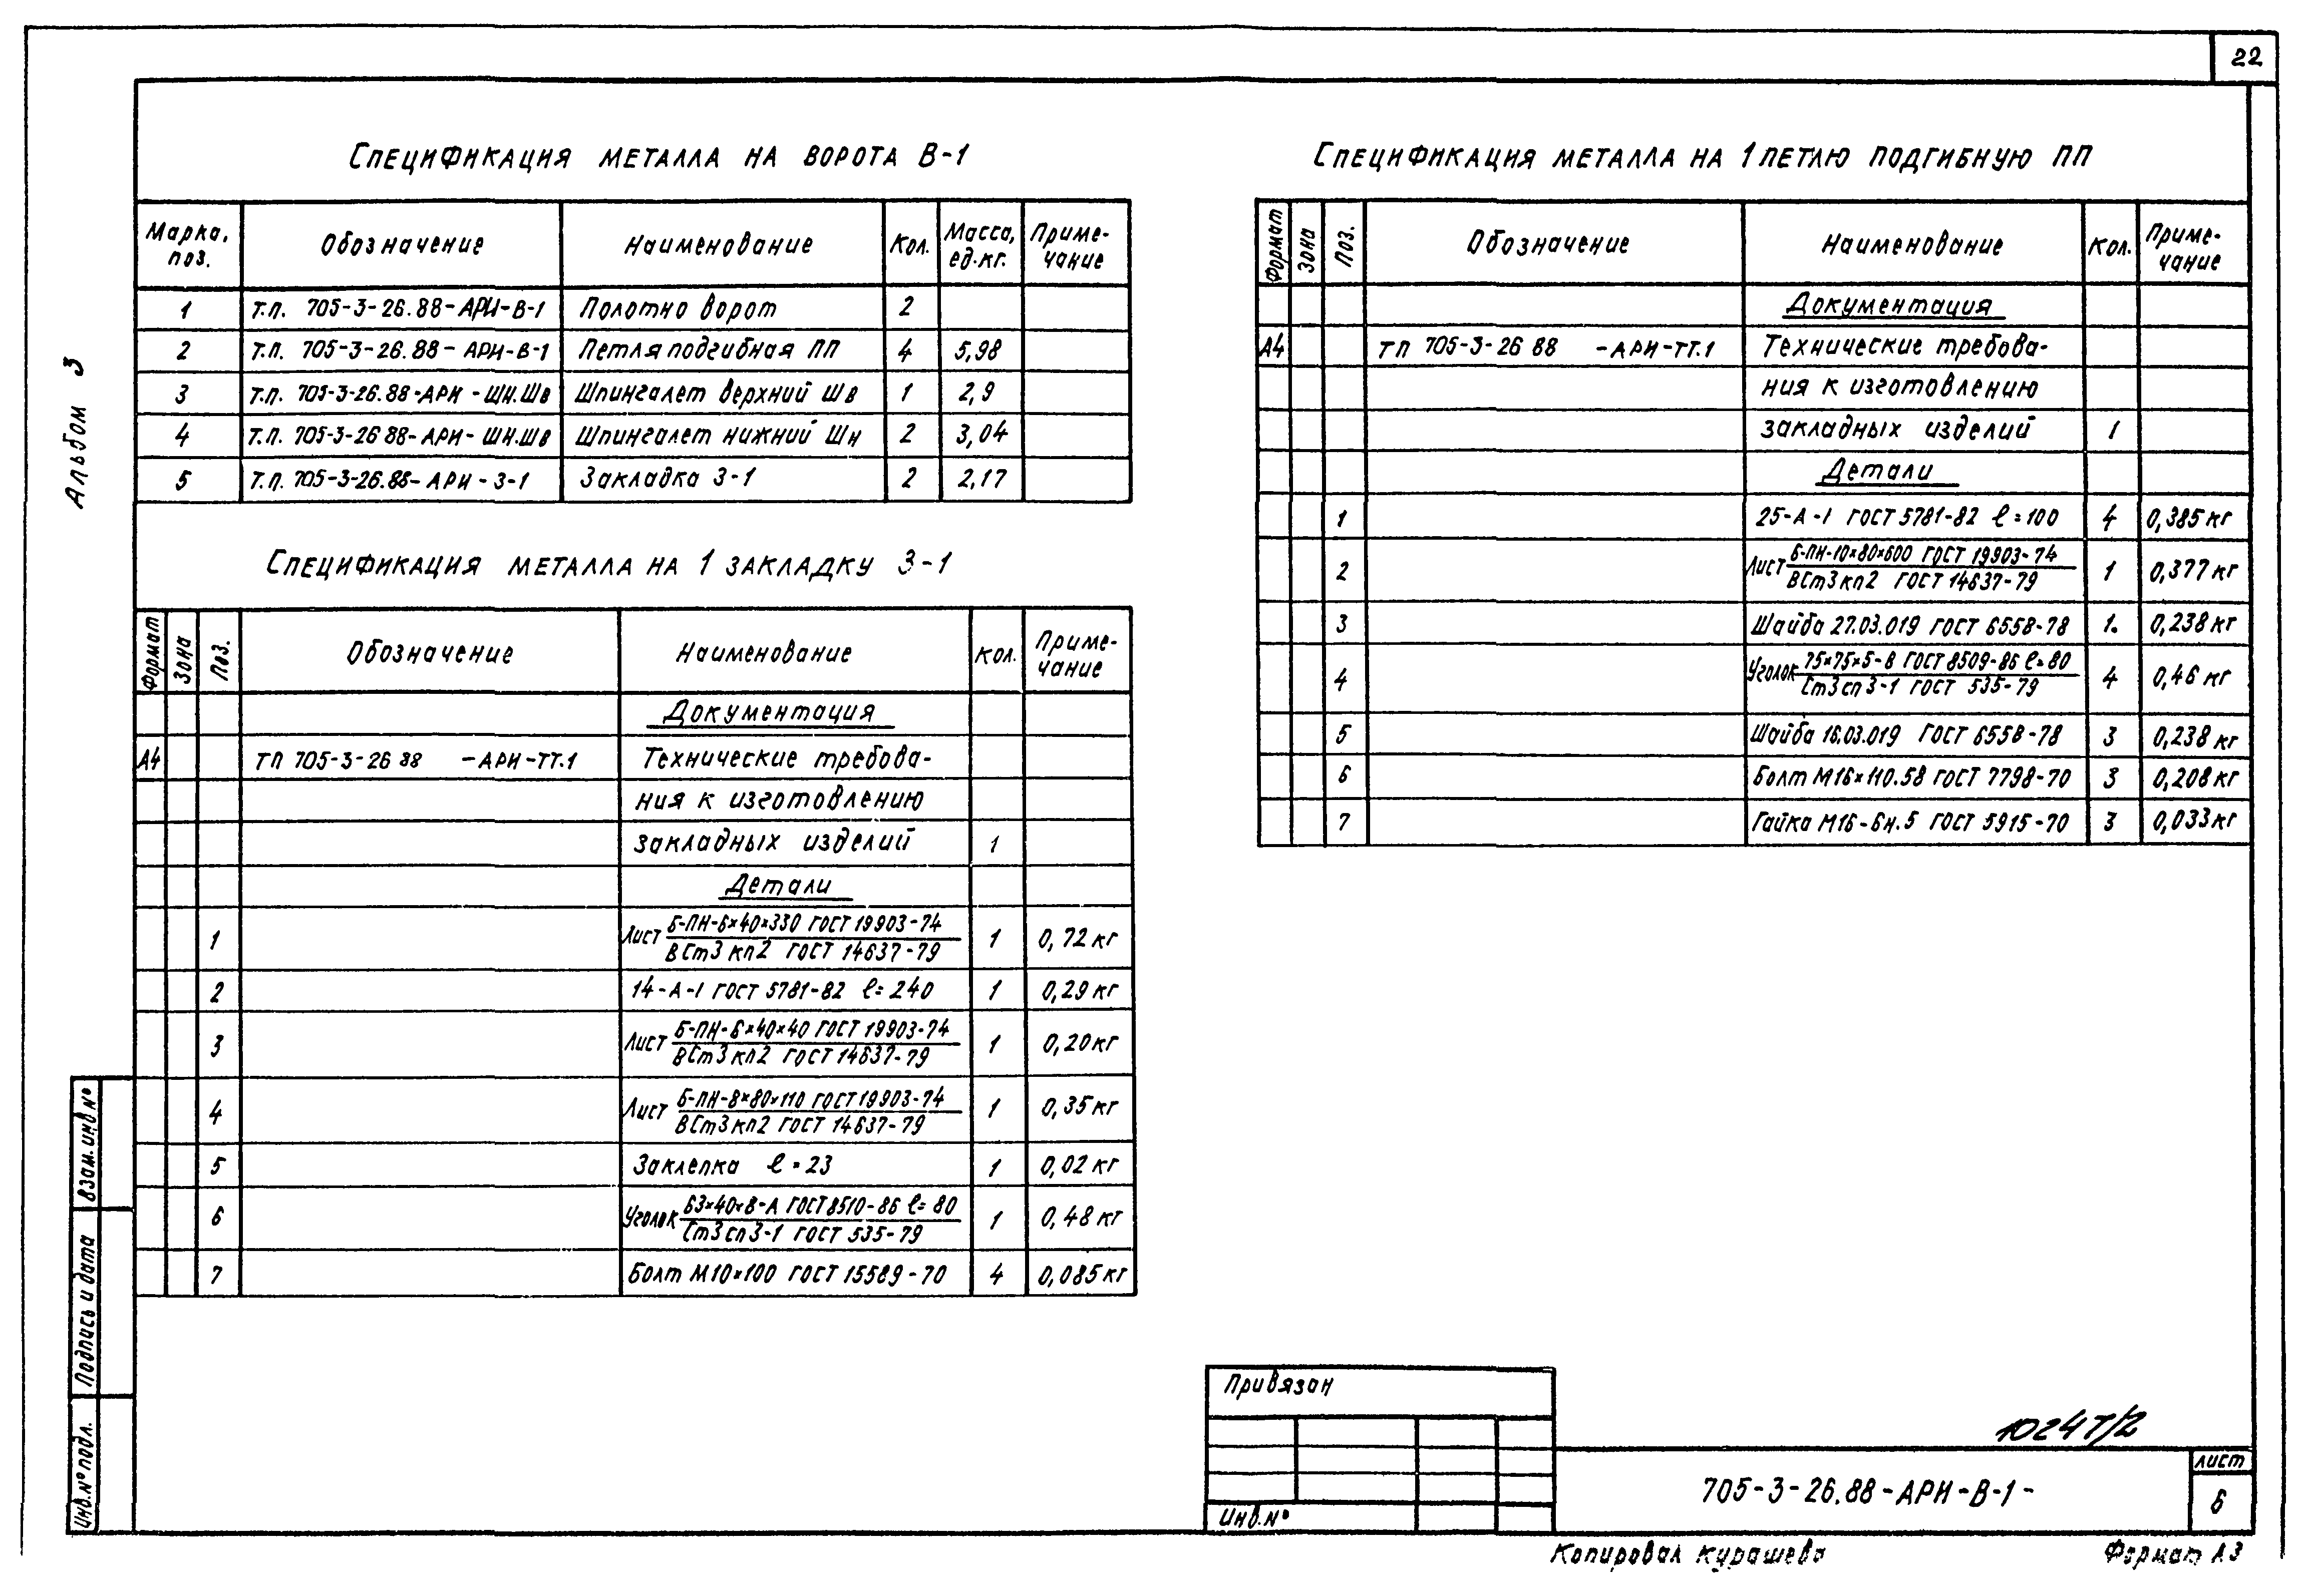 22
Альбом 3
Спецификация металла на ворота В-1
Марка, поз. Обозначение Наименование Кол. Масса, ед.кг. Приме-чание
1 Т.п. 705-3-26.88-АРИ-В-1 Полотно ворот 2
2 Т.п. 705-3-26.88-АРИ-В-1 Петля подгибная ПП 4 5,98
3 Т.п. 705-3-26.88-АРИ-ШН.ШВ Шпингалет верхний Шв 1 2,9
4 Т.п. 705-3-26 88-АРИ-ШН.ШВ Шпингалет нижний Шн 2 3,04
5 Т.п. 705-3-26.88-АРИ-З-1 Закладка З-1 2 2,17
Спецификация металла на 1 закладку З-1
Формат Зона Поз. Обозначение Наименование Кол. Приме-чание
Документация
А4 ТП 705-3-26 88 -АРИ-ТТ.1 Технические требова-
ния к изготовлению
закладных изделий 1
Детали
1 Лист Б-ПН-6×40×330 ГОСТ 19903-74 1 0,72 кг
ВСт3кп2 ГОСТ 14637-79
2 14-А-I ГОСТ 5781-82 ℓ=240 1 0,29 кг
3 Лист Б-ПН-6×40×40 ГОСТ 19903-74 1 0,20 кг
ВСт3кп2 ГОСТ 14637-79
4 Лист Б-ПН-8×80×110 ГОСТ 19903-74 1 0,35 кг
ВСт3кп2 ГОСТ 14637-79
5 Заклепка ℓ=23 1 0,02 кг
6 Уголок 63×40×8-А ГОСТ 8510-86 ℓ=80 1 0,48 кг
Ст3сп3-1 ГОСТ 535-79
7 Болт М10×100 ГОСТ 15589-70 4 0,085 кг
Спецификация металла на 1 петлю подгибную ПП
Формат Зона Поз. Обозначение Наименование Кол. Приме-чание
Документация
А4 ТП 705-3-26 88 -АРИ-ТТ.1 Технические требова-
ния к изготовлению
закладных изделий 1
Детали
1 25-А-I ГОСТ 5781-82 ℓ=100 4 0,385 кг
2 Лист Б-ПН-10×80×600 ГОСТ 19903-74 1 0,377 кг
ВСт3кп2 ГОСТ 14637-79
3 Шайба 27.03.019 ГОСТ 6558-78 1. 0,238 кг
4 Уголок 75×75×5-В ГОСТ 8509-86 ℓ=80 4 0,46 кг
Ст3сп3-1 ГОСТ 535-79
5 Шайба 16.03.019 ГОСТ 6558-78 3 0,238 кг
6 Болт М16×110.58 ГОСТ 7798-70 3 0,208 кг
7 Гайка М16-6н.5 ГОСТ 5915-70 3 0,033 кг
Взам. инв №
Подпись и дата
Инв.№ подл.
Привязан
Инв.№
1024Т/2
705-3-26.88-АРИ-В-1-
Лист
6
Копировал Курашева
Формат А3